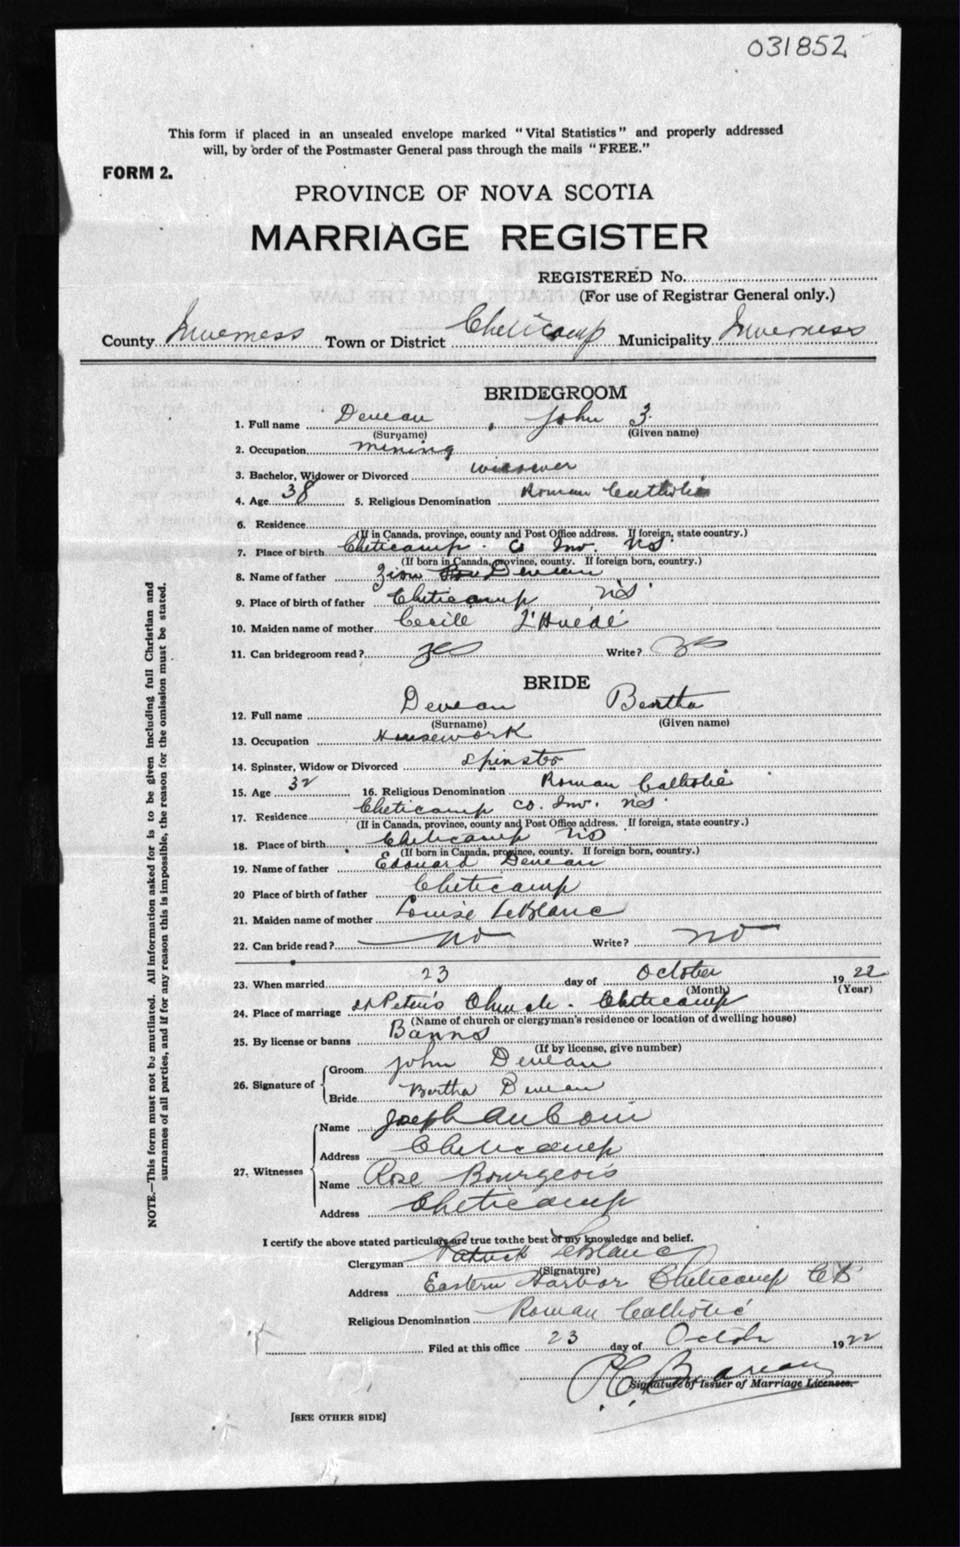 031852
This form if placed in an unsealed envelope marked "Vital Statistics" and properly addressed
will, by order of the Postmaster General pass through the mails "FREE."
FORM 2.
PROVINCE OF NOVA SCOTIA
MARRIAGE REGISTER
REGISTERED No.
(For use of Registrar General only.)
County Inverness Town or District Cheticamp Municipality Inverness
BRIDEGROOM
1. Full name Deveau, John
(Surname) (Given name)
2. Occupation mining
3. Bachelor, Widower or Divorced widower
4. Age 38 5. Religious Denomination Roman Catholic
6. Residence
(If in Canada, province, county and Post Office address. If foreign, state country.)
7. Place of birth Cheticamp. Co Inv. NS.
(If born in Canada, province, county. If foreign born, country.)
8. Name of father Deveau
9. Place of birth of father Cheticamp NS.
10. Maiden name of mother Cecile
11. Can bridegroom read? yes Write? yes
BRIDE
12. Full name Deveau Bertha
(Surname) (Given name)
13. Occupation Housework
14. Spinster, Widow or Divorced Spinster
15. Age 32 16. Religious Denomination Roman Catholic
17. Residence Cheticamp Co. Inv. NS.
(If in Canada, province, county and Post Office address. If foreign, state country.)
18. Place of birth Cheticamp NS
(If born in Canada, province, county. If foreign born, country.)
19. Name of father Edouard Deveau
20 Place of birth of father Cheticamp
21. Maiden name of mother Louise LeBlanc
22. Can bride read? no Write? no
23. When married 23 day of October 1922
(Month) (Year)
24. Place of marriage St Peter's Church. Cheticamp
(Name of church or clergyman's residence or location of dwelling house)
25. By license or banns Banns
(If by license, give number)
26. Signature of Groom John Deveau
Bride Bertha Deveau
27. Witnesses
Name Joseph AuCoin
Address Cheticamp
Name Rose Bourgeois
Address Cheticamp
I certify the above stated particulars are true to the best of my knowledge and belief.
Clergyman Patrick LeBlanc
(Signature)
Address Eastern Harbor Cheticamp CB
Religious Denomination Roman Catholic
Filed at this office 23 day of October 1922
Signature of Issuer of Marriage Licenses.
[SEE OTHER SIDE]
NOTE.—This form must not be mutilated. All information asked for is to be given including full Christian and
surnames of all parties, and if for any reason this is impossible, the reason for the omission must be stated.